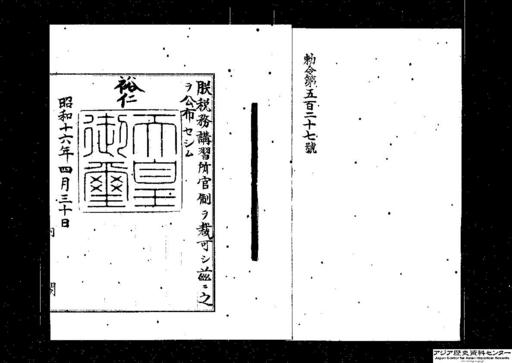 勅令第五百二十七號
朕税務講習所官制ヲ裁可シ茲ニ之
ヲ公布セシム
裕仁
天皇
御璽
昭和十六年四月三十日
内閣
アジア歴史資料センター
Japan Center for Asian Historical Records